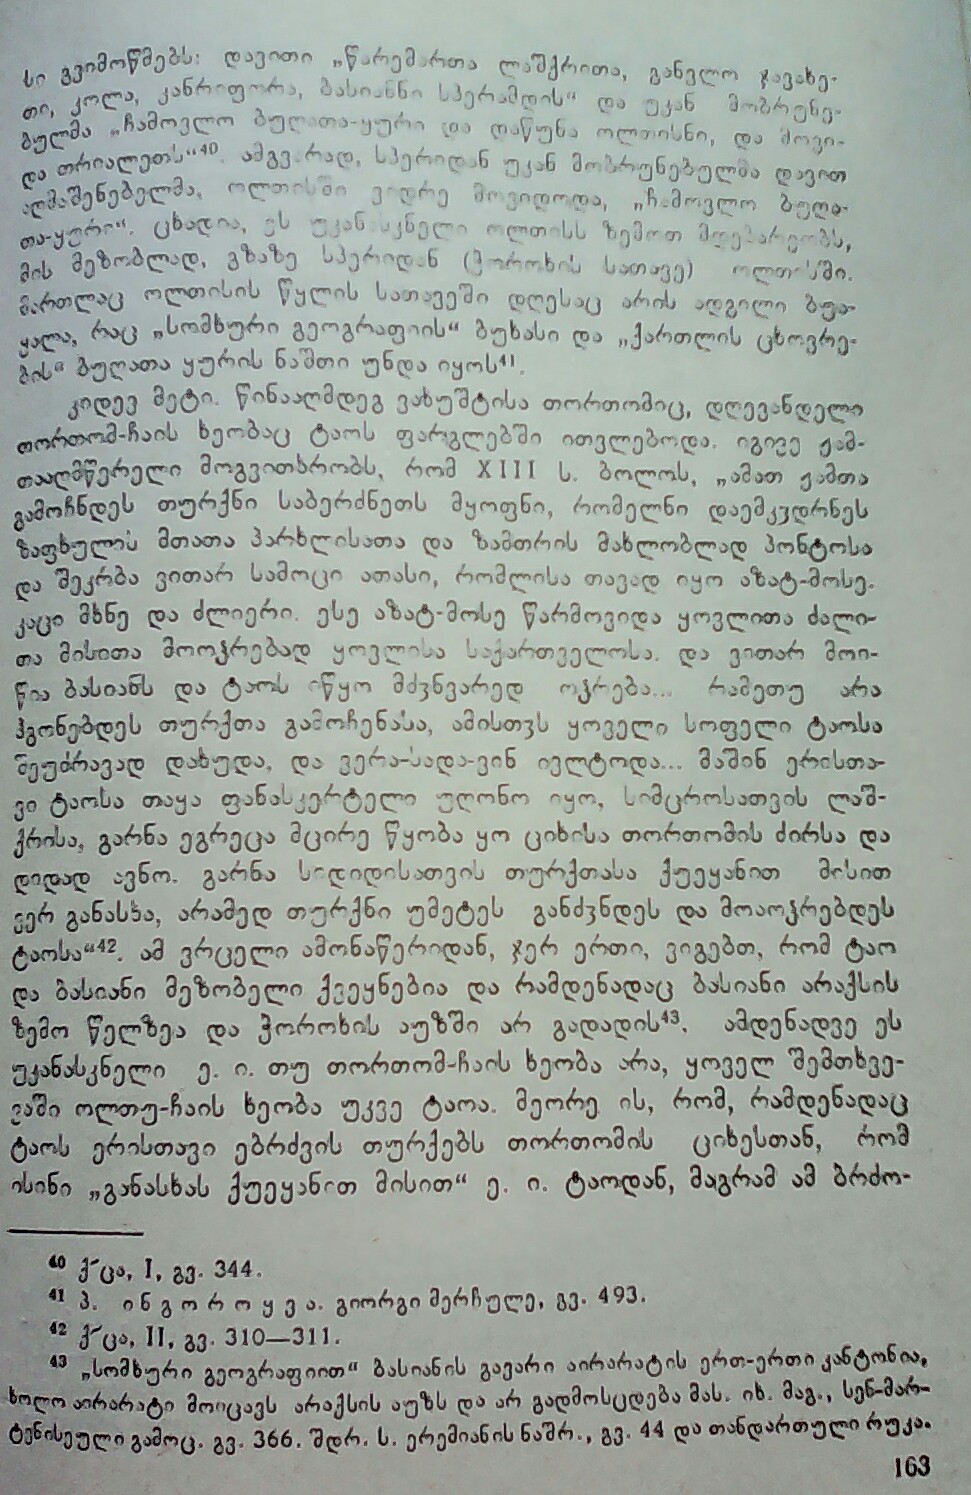 სი გვიმოწმებს: დავითი „წარემართა ლაშქრითა, განვლო ჯავახე-
თი, კოლა, კანრიფორა, ბასიანნი სპერამდის“ და უკან მობრუნე-
ბულმა „ჩამოვლო ბუღათა-ყური და დაწუნა ოლთისნი, და მოვი-
და თრიალეთს“⁴⁰. ამგვარად, სპერიდან უკან მობრუნებულმა დავით
აღმაშენებელმა, ოლთისში ვიდრე მოვიდოდა, „ჩამოვლო ბუღა-
თა-ყური“. ცხადია, ეს უკანასკნელი ოლთისს ზემოთ მდებარეობს,
მის მეზობლად, გზაზე სპერიდან (ჭოროხის სათავე) ოლთისში.
მართლაც ოლთისის წყლის სათავეში დღესაც არის ადგილი ბუა-
ყალა, რაც „სომხური გეოგრაფიის“ ბუხასი და „ქართლის ცხოვრე-
ბის“ ბუღათა ყურის ნაშთი უნდა იყოს⁴¹.
კიდევ მეტი. წინააღმდეგ ვახუშტისა თორთომიც, დღევანდელი
თორთომ-ჩაის ხეობაც ტაოს ფარგლებში ითვლებოდა. იგივე ჟამ-
თააღმწერელი მოგვითხრობს, რომ XIII ს. ბოლოს, „ამათ ჟამთა
გამოჩნდეს თურქნი საბერძნეთს მყოფნი, რომელნი დაემკჳდრნეს
ზაფხულის მთათა პარხლისათა და ზამთრის მახლობლად პონტოსა
და შეკრბა ვითარ სამოცი ათასი, რომლისა თავად იყო აზატ-მოსე.
კაცი მხნე და ძლიერი. ესე აზატ-მოსე წარმოვიდა ყოვლითა ძალი-
თა მისითა მოოჭრებად ყოვლისა საქართველოსა. და ვითარ მოი-
წია ბასიანს და ტაოს იწყო მძჳნვარედ ოჭრება... რამეთუ არა
ჰგონებდეს თურქთა გამოჩენასა, ამისთჳს ყოველი სოფელი ტაოსა
შეუძრავად დახუდა, და ვერა-სადა-ვინ ივლტოდა... მაშინ ერისთა-
ვი ტაოსა თაყა ფანასკერტელი უღონო იყო, სიმცროსათვის ლაშ-
ქრისა, გარნა ეგრეცა მცირე წყობა ყო ციხისა თორთომის ძირსა და
დიდად ავნო. გარნა სიდიდისათვის თურქთასა ქუეყანით მისით
ვერ განასხა, არამედ თურქნი უმეტეს განძჳნდეს და მოაოჭრებდეს
ტაოსა“⁴². ამ ვრცელი ამონაწერიდან, ჯერ ერთი, ვიგებთ, რომ ტაო
და ბასიანი მეზობელი ქვეყნებია და რამდენადაც ბასიანი არაქსის
ზემო წელზეა და ჭოროხის აუზში არ გადადის⁴³. ამდენადვე ეს
უკანასკნელი ე. ი. თუ თორთომ-ჩაის ხეობა არა, ყოველ შემთხვე-
ვაში ოლთუ-ჩაის ხეობა უკვე ტაოა. მეორე ის, რომ, რამდენადაც
ტაოს ერისთავი ებრძვის თურქებს თორთომის ციხესთან, რომ
ისინი „განასხას ქუეყანით მისით“ ე. ი. ტაოდან, მაგრამ ამ ბრძო-
⁴⁰ ქ˜ცა, I, გვ. 344.
⁴¹ პ. ინგოროყვა. გიორგი მერჩულე, გვ. 493.
⁴² ქ˜ცა, II, გვ. 310—311.
⁴³ „სომხური გეოგრაფიით“ ბასიანის გავარი აირარატის ერთ-ერთი კანტონია,
ხოლო აირარატი მოიცავს არაქსის აუზს და არ გადმოსცდება მას. იხ. მაგ., სენ-მარ-
ტენისეული გამოც. გვ. 366. შდრ. ს. ერემიანის ნაშრ., გვ. 44 და თანდართული რუკა.
163